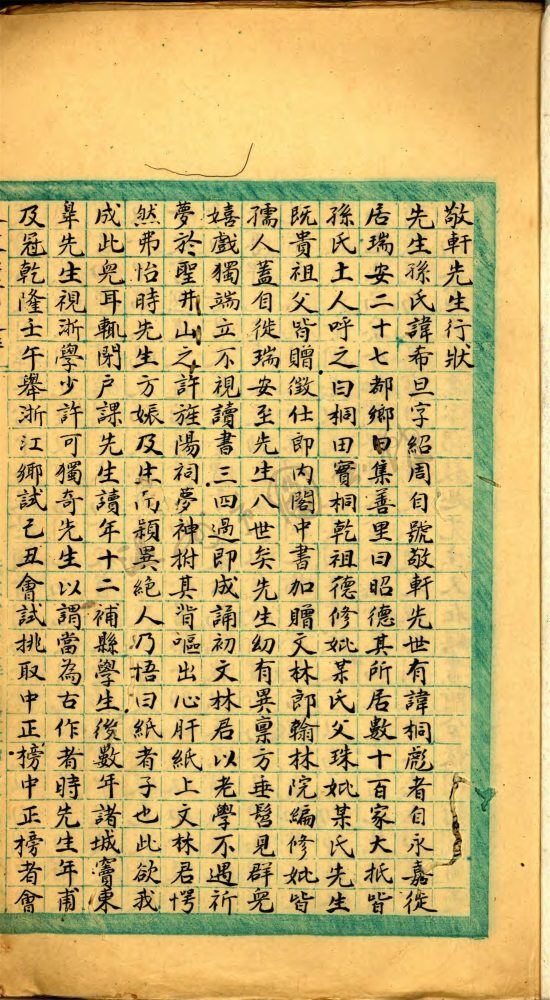 敬軒先生行狀
先生孫氏諱希旦字紹周自號敬軒先世有諱桐彪者自永嘉徙
居瑞安二十七都鄉曰集善里曰昭德其所居數十百家大抵皆
孫氏土人呼之曰桐田實桐乾祖德修妣某氏父珠妣某氏先生
既貴祖父皆贈徵仕郎內閣中書加贈文林郎翰林院編修妣皆
孺人蓋自徙瑞安至先生八世矣先生幼有異稟方垂髫見群兒
嬉戲獨端立不視讀書三四過即成誦初文林君以老學不遇祈
夢於聖井山之許旌陽祠夢神拊其背嘔出心肝紙上文林君愕
然弗怡時先生方娠及生而穎異絕人乃悟曰紙者子也此欲我
成此兒耳輒閉戶課先生讀年十二補縣學生後數年諸城竇東
臯先生視浙學少許可獨奇先生以謂當為古作者時先生年甫
及冠乾隆壬午舉浙江鄉試己丑會試挑取中正榜中正榜者會